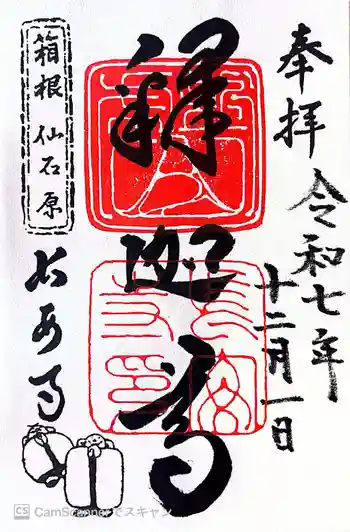 奉拝
令和七年
十二月一日
釈迦尊
箱根 仙石原
長安寺
CS CamScannerでスキャン